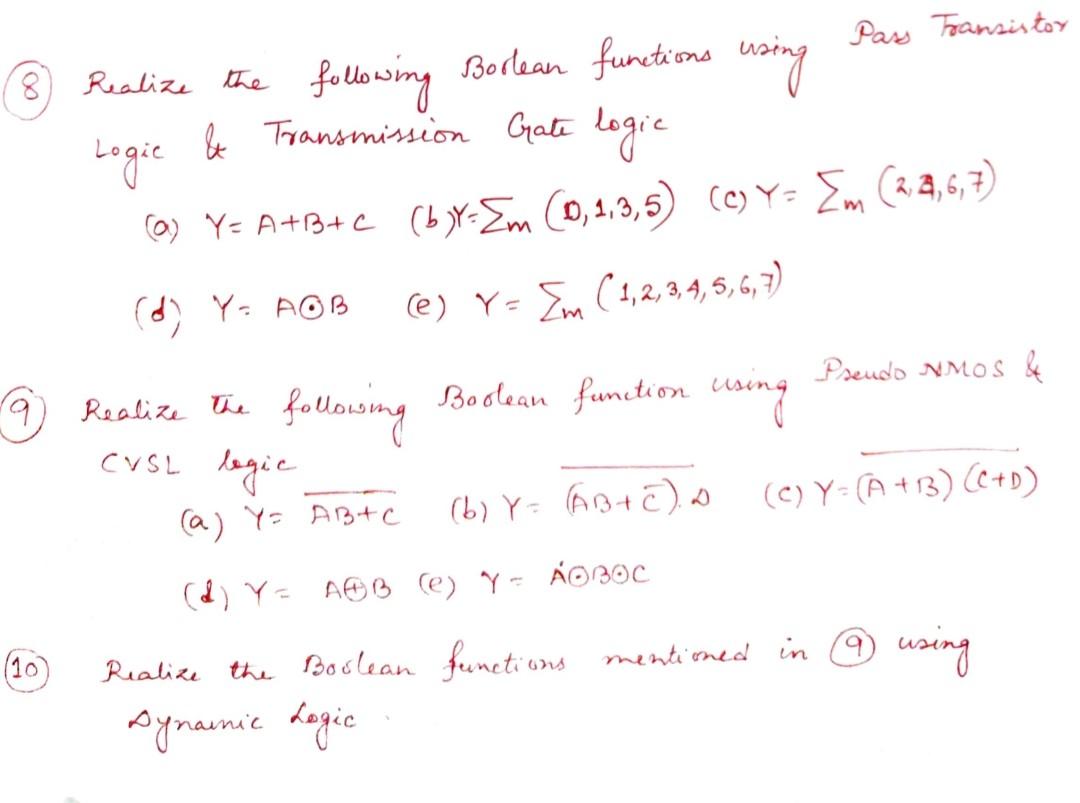 (8) Realize the following Boolean functions using Pass Transistor
Logic & Transmission Gate logic
(a) Y = A+B+C (b) Y = Σm (0,1,3,5) (c) Y = Σm (2,3,6,7)
(d) Y = A⊙B (e) Y = Σm (1,2,3,4,5,6,7)
(9) Realize the following Boolean function using Pseudo NMOS &
CVSL logic
(a) Y = \overline{AB+C} (b) Y = \overline{(AB+\overline{C}).D} (c) Y = \overline{(A+B)(C+D)}
(d) Y = A⊕B (e) Y = A⊙B⊙C
(10) Realize the Boolean functions mentioned in (9) using
Dynamic Logic.